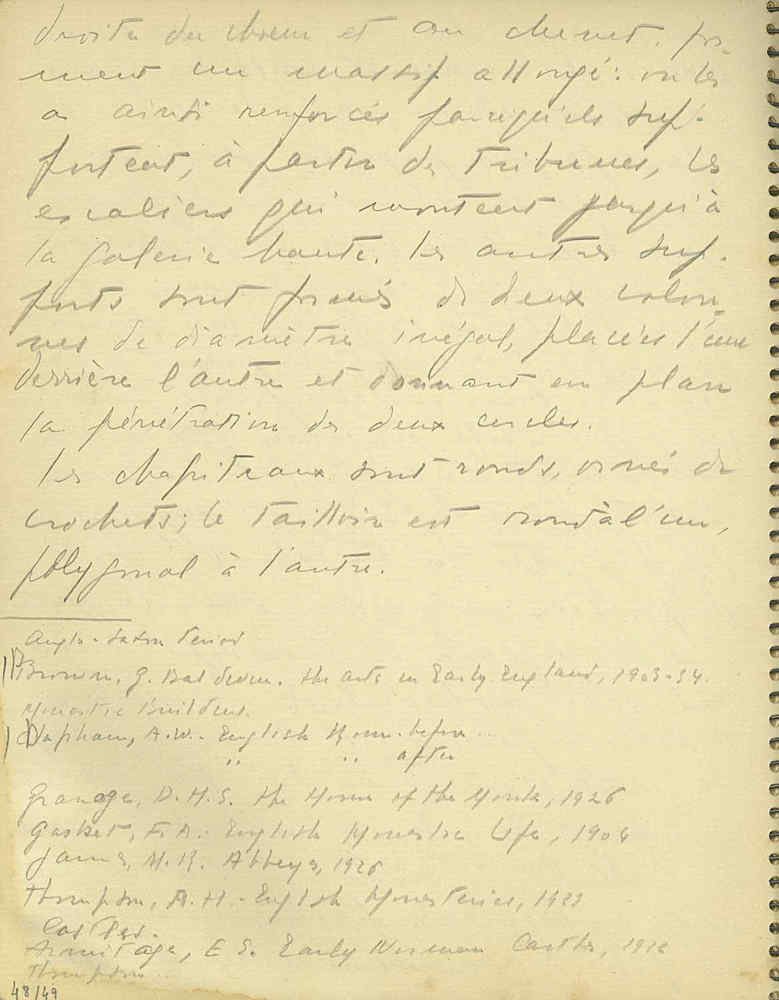 droite du chœur et au chevet, for-
ment un massif allongé: on les
a ainsi renforcés parcequ'ils sup-
portent, à partir des tribunes, les
escaliers qui montent jusqu'à
la galerie haute. Les autres sup-
ports sont formés de deux colon-
nes de diamètre inégal, placées l'une
derrière l'autre et donnant en plan
la pénétration de deux cercles.
Les chapiteaux sont ronds, ornés de
crochets; le tailloir est rond à l'un,
polygonal à l'autre.
Anglo-Saxon Period
Brown, G. Baldwin. The arts in Early England, 1903-
Monastic Buildings.
Clapham, A.W.- English Rom. before ...
" " after
D.H.S. The Home of the Monk, 1926
Gasquet, F.A.: English Monastic Life, 1904
James, M.R. Abbeys, 1926
Thompson, A.H.- English Monasteries,
Castles.
Armitage, E S. Early Norman Castles, 1912
Thompson ...
48/49